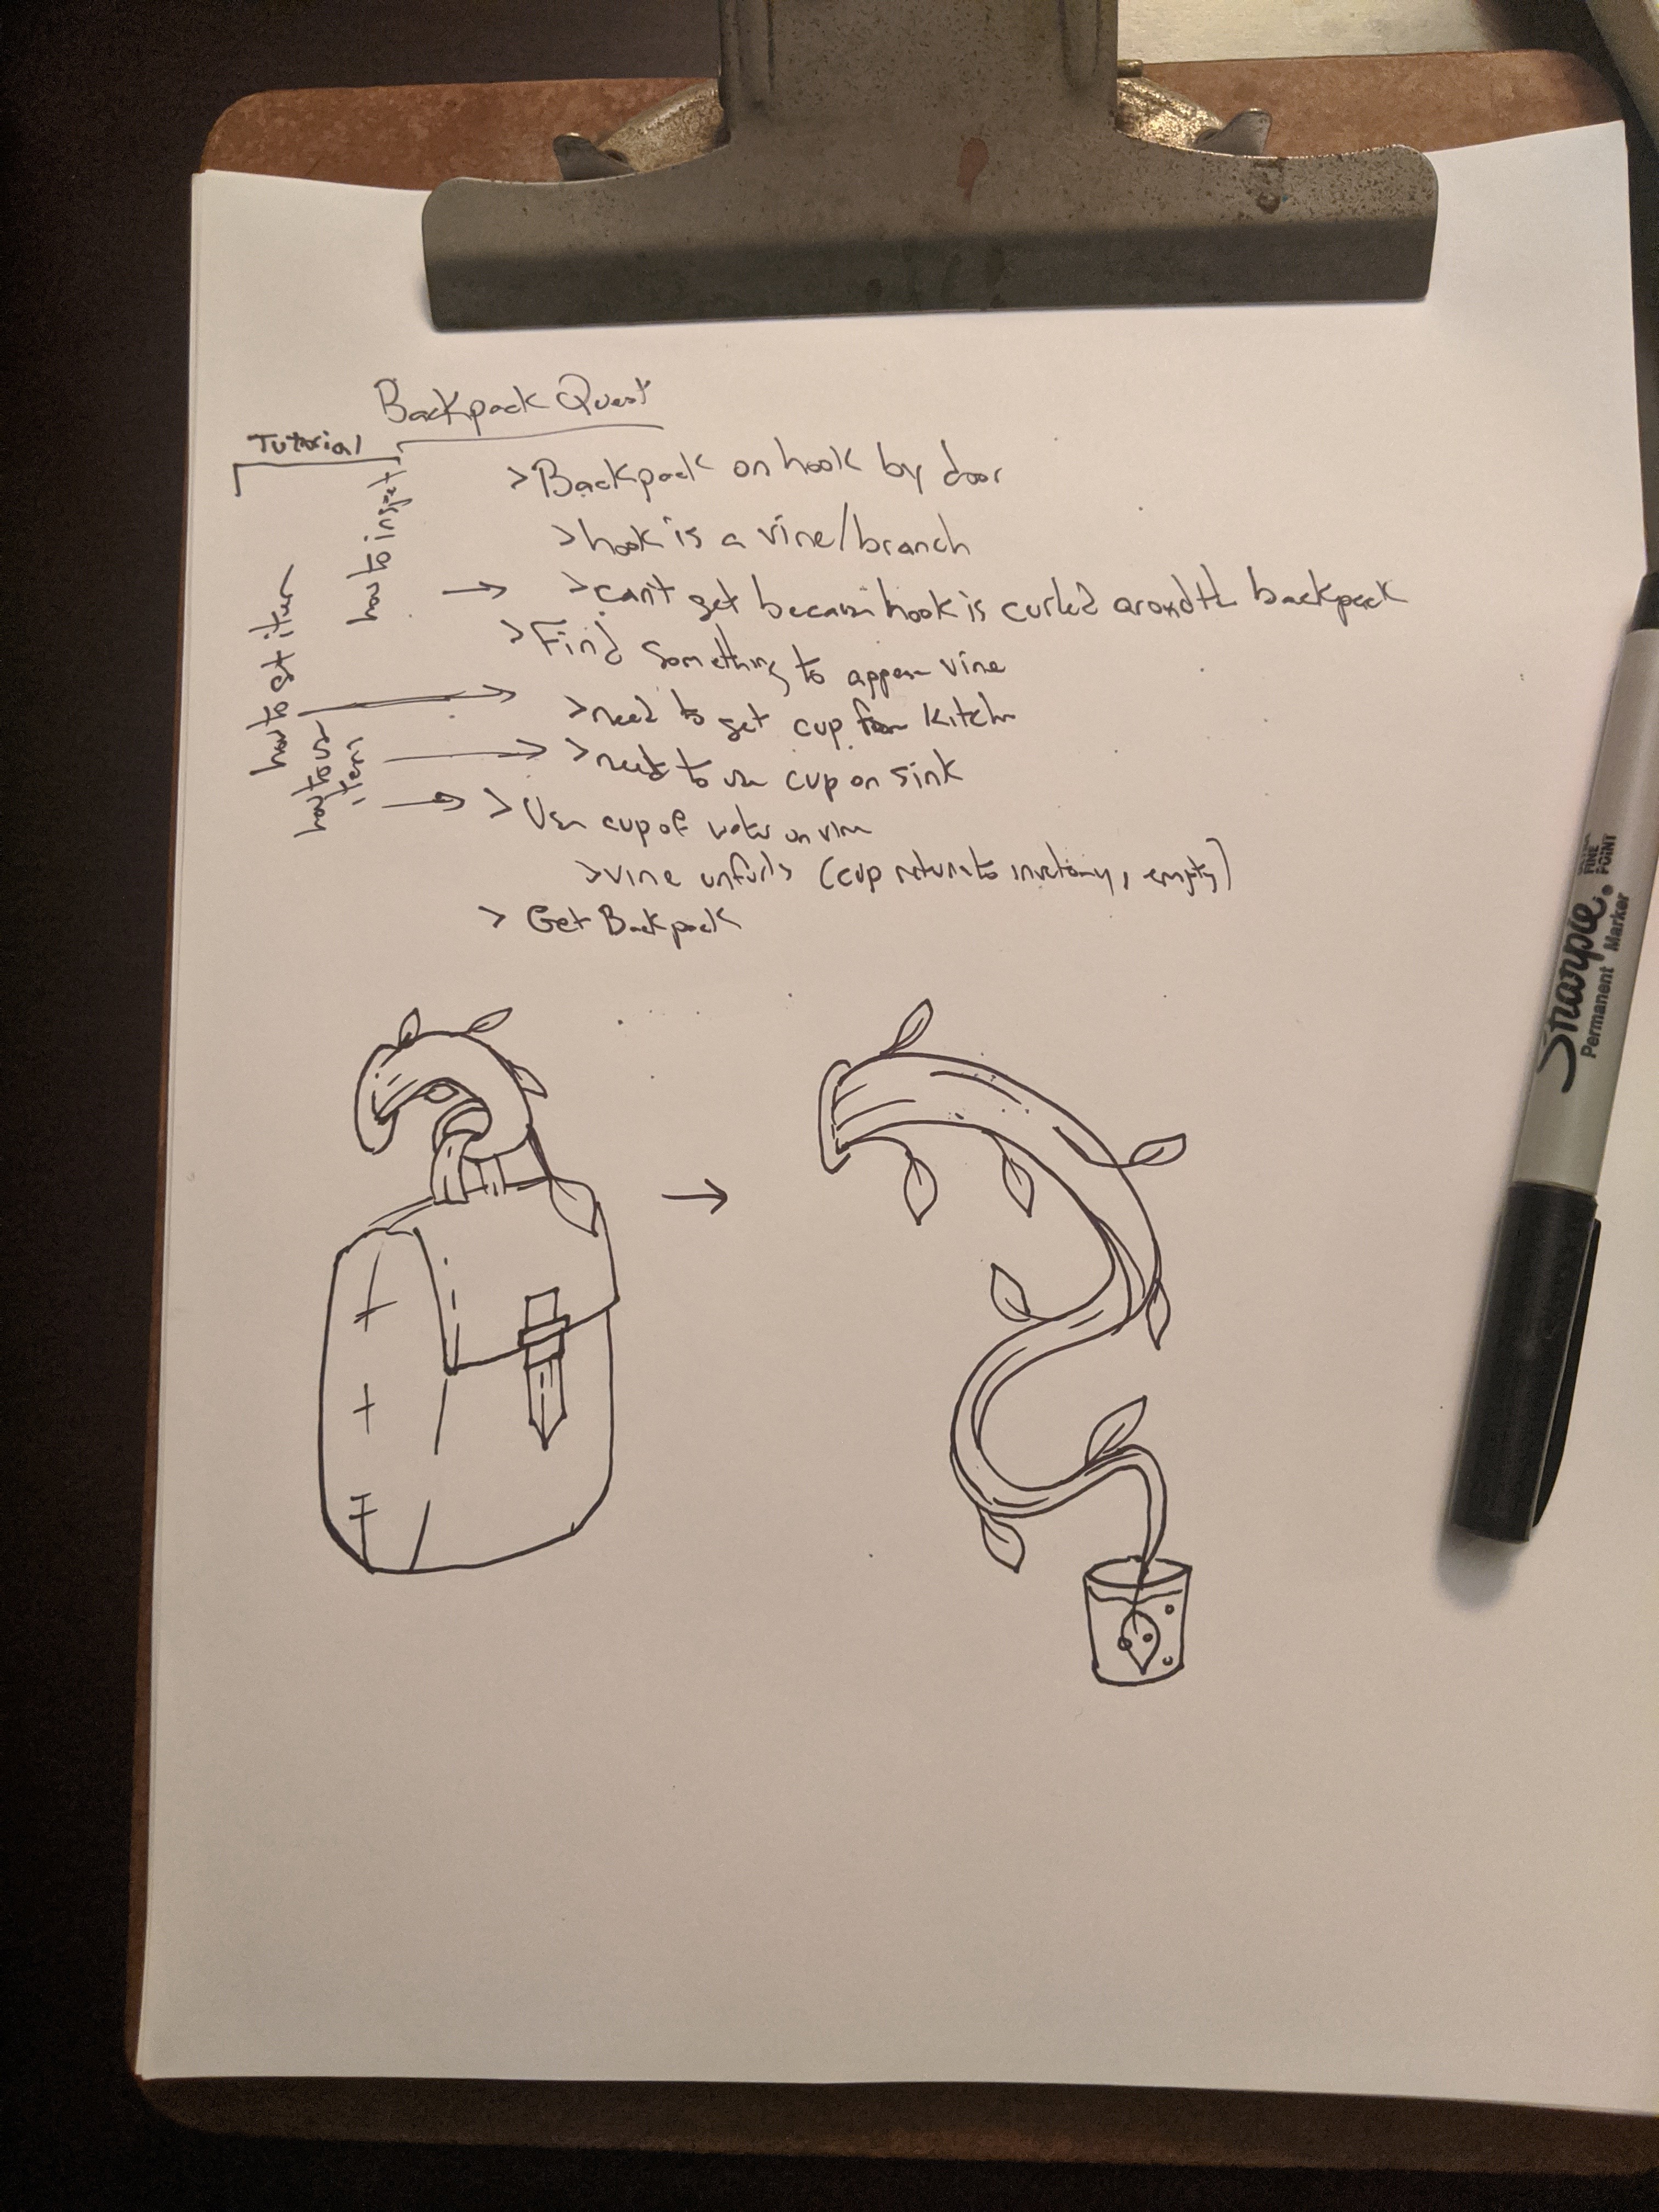 Backpack Quest
Tutorial
how to inspect
how to get item
how to use item
> Backpack on hook by door
> hook is a vine/branch
> can't get because hook is curled around the backpack
> Find something to appease vine
> need to get cup from kitchen
> need to use cup on sink
> Use cup of water on vine
> vine unfurls (cup returns to inventory, empty)
> Get Backpack
Sharpie
FINE POINT
Permanent Marker